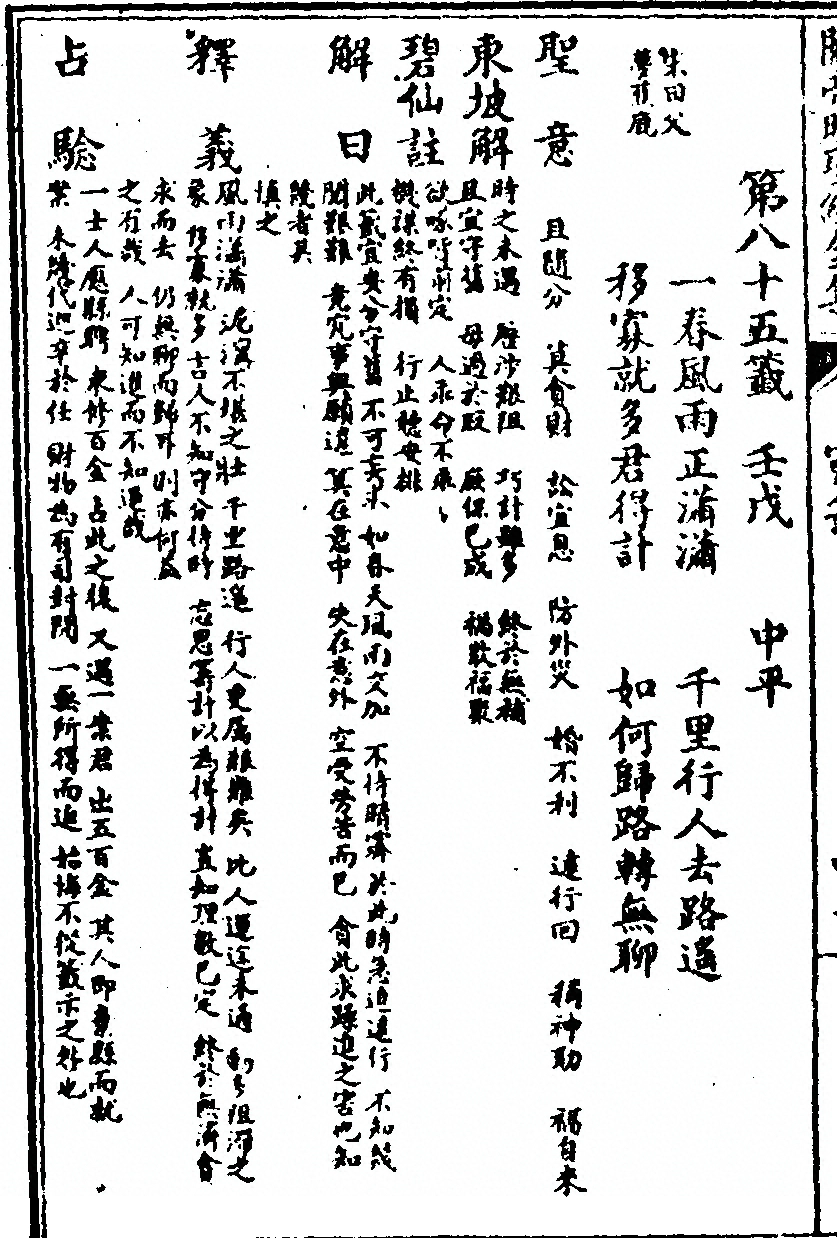 第八十五籤 壬戌 中平
一春風雨正瀟瀟 千里行人去路遙
移寡就多君得計 如何歸路轉無聊
朱曰父
夢鹿
聖意 且隨分 莫貪財 訟宜息 防外災 婚不利 遠行回 福自來
東坡解 時之未遇 歷涉艱阻 巧計雖多 終於無補
且宜守舊 毋過於貶 庶保已成 禍散福聚
碧仙註 前定 人求命不乖
機謀終有損 行止聽安排
解曰 此籤宜安分守舊 不可妄求 如春天風雨交加 不待晴霽 於此時急迫遠行 不知幾
關艱難 竟究事與願違 其在意中 失在意外 空受勞苦而已 會此求躁進之害也 知
幾者其
慎之
釋義 風雨瀟瀟 泥濘不堪之狀 千里路遙 行人更屬艱難矣 比人運途未通 多阻滯之
象 移寡就多 古人不知守分待時 為得計 豈知理數已定 終於無濟
求而去 仍無聊而歸 則亦何益
之有哉 人可知進而不知退哉
占驗 一士人應縣聘 束修百金 占此之後 又遇一業君 出五百金 其人即棄縣而就
業 未幾代迎卒於任 財物為有司封閉 一無所得而返 始悔不從籤示之外也